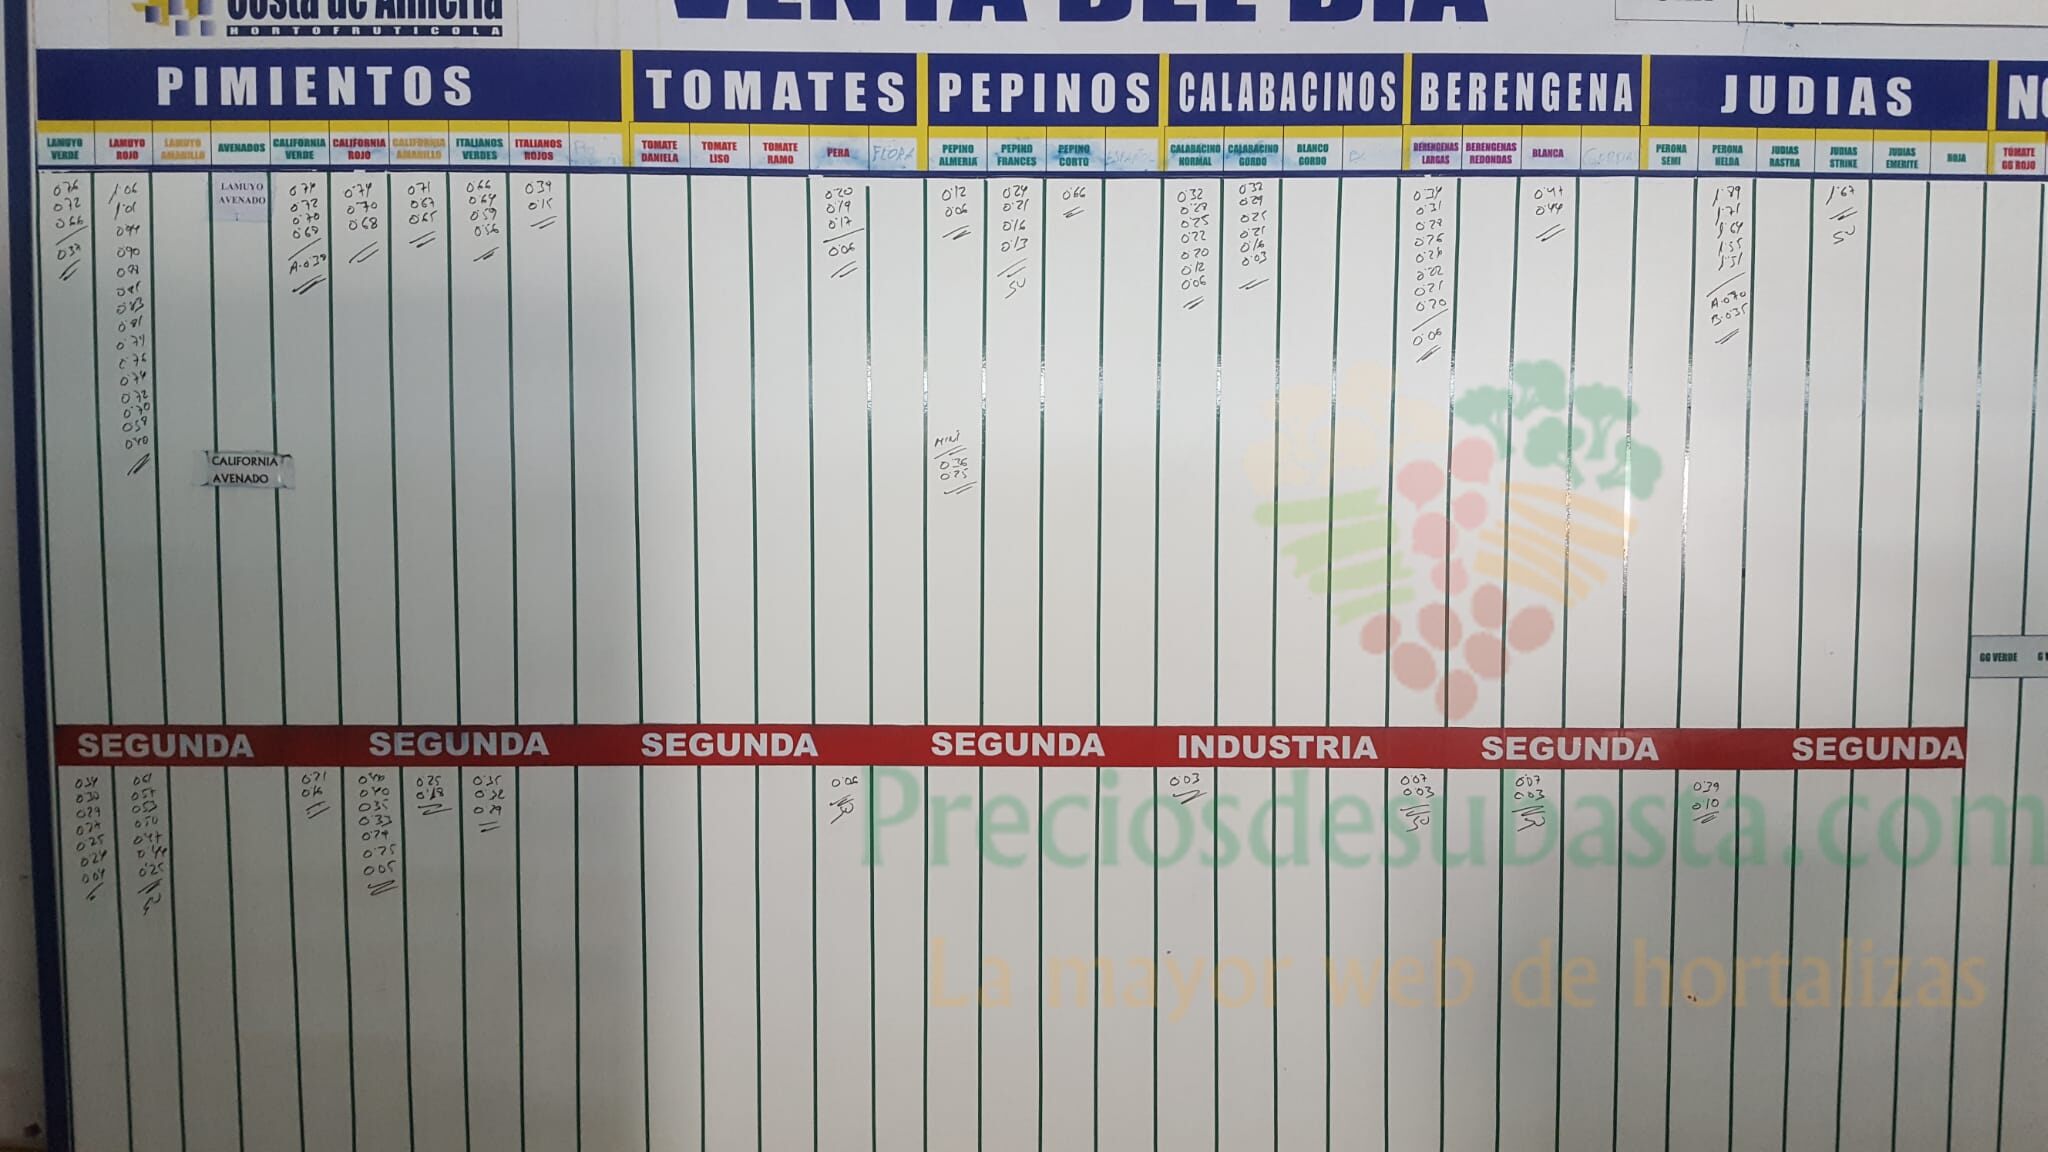 Costa de Almería
HORTOFRUTICOLA
VENTA DEL DIA
PIMIENTOS TOMATES PEPINOS CALABACINOS BERENGENA JUDIAS
LAMUYO VERDE
LAMUYO ROJO
LAMUYO AMARILLO
AVENADOS
CALIFORNIA VERDE
CALIFORNIA ROJO
CALIFORNIA AMARILLO
ITALIANOS VERDES
ITALIANOS ROJOS
TOMATE DANIELA
TOMATE LISO
TOMATE RAMO
PERA
FLORA
PEPINO ALMERIA
PEPINO FRANCES
PEPINO CORTO
ESPAÑOL
CALABACINO NORMAL
CALABACINO GORDO
BLANCO GORDO
BERENGENAS LARGAS
BERENGENAS REDONDAS
BLANCA
PERONA SEMI
PERONA HELDA
JUDIAS RASTRA
JUDIAS STRIKE
JUDIAS EMERITE
ROJA
TOMATE GG ROJO
0'76
0'72
0'66
0'37
1'06
1'01
0'90
0'83
0'81
0'76
0'74
0'72
0'70
LAMUYO
AVENADO
0'74
0'72
0'70
0'68
0'74
0'70
0'68
0'71
0'67
0'65
0'66
0'64
0'59
0'56
0'39
0'15
0'20
0'19
0'17
0'06
0'12
0'06
0'24
0'21
0'16
0'13
SU
0'66
0'32
0'25
0'22
0'20
0'12
0'06
0'32
0'29
0'25
0'21
0'16
0'03
0'34
0'31
0'26
0'24
0'22
0'21
0'20
0'06
0'47
0'44
1'89
1'71
1'64
1'55
1'51
A-0'70
B-0'35
1'67
SU
CALIFORNIA
AVENADO
MINI
0'36
0'25
GG VERDE
SEGUNDA SEGUNDA SEGUNDA SEGUNDA INDUSTRIA SEGUNDA SEGUNDA
0'34
0'30
0'29
0'27
0'25
0'24
0'04
0'61
0'57
0'53
0'50
0'47
0'44
0'25
SU
0'21
0'16
0'40
0'35
0'33
0'29
0'25
0'05
0'25
0'18
0'35
0'32
0'29
0'06
SU
0'03
0'07
0'03
SU
0'07
0'03
SU
0'39
0'10
Preciosdesubasta.com
La mayor web de hortalizas